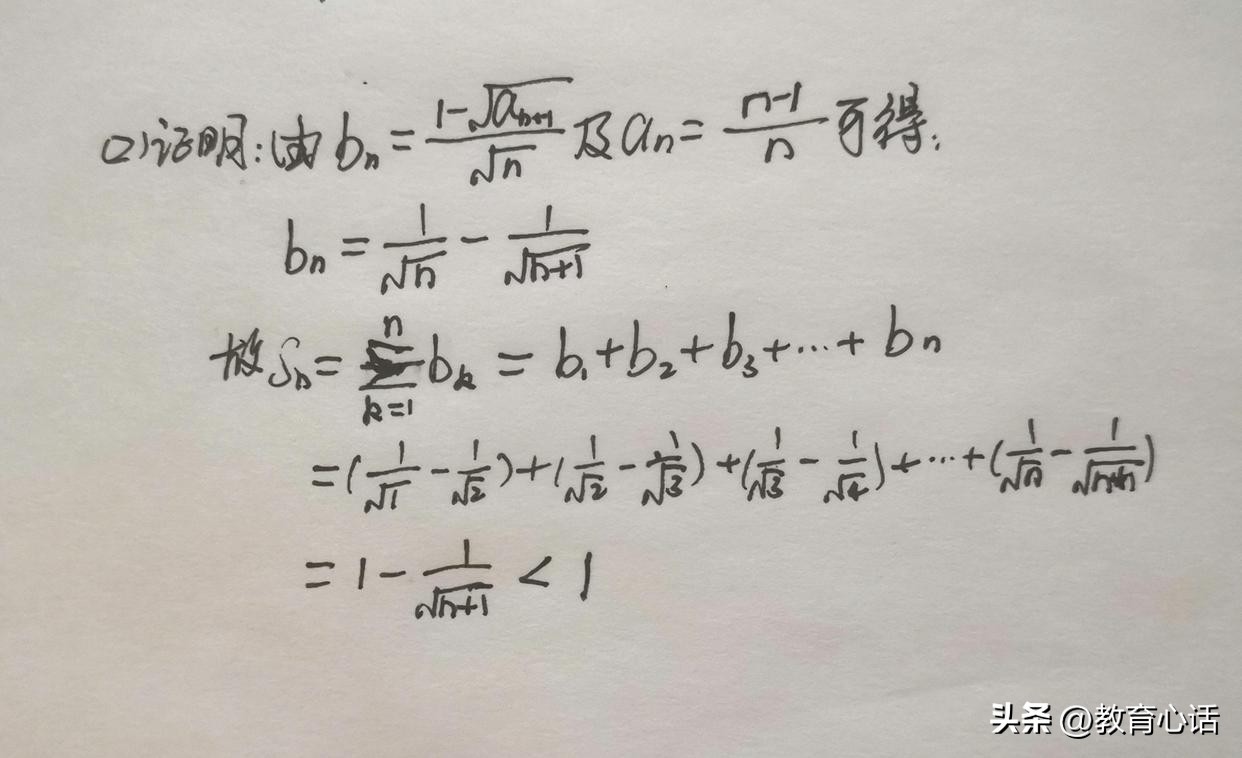 (2)证明:由 bₙ = (1-√aₙ₊₁)/√n 及 aₙ = (n-1)/n 可得:
bₙ = 1/√n - 1/√(n+1)
故 Sₙ = ∑ₖ₌₁ⁿ bₖ = b₁+b₂+b₃+…+bₙ
=(1/√1 - 1/√2)+(1/√2 - 1/√3)+(1/√3 - 1/√4)+…+(1/√n - 1/√(n+1))
= 1 - 1/√(n+1) < 1
头条 @教育心话